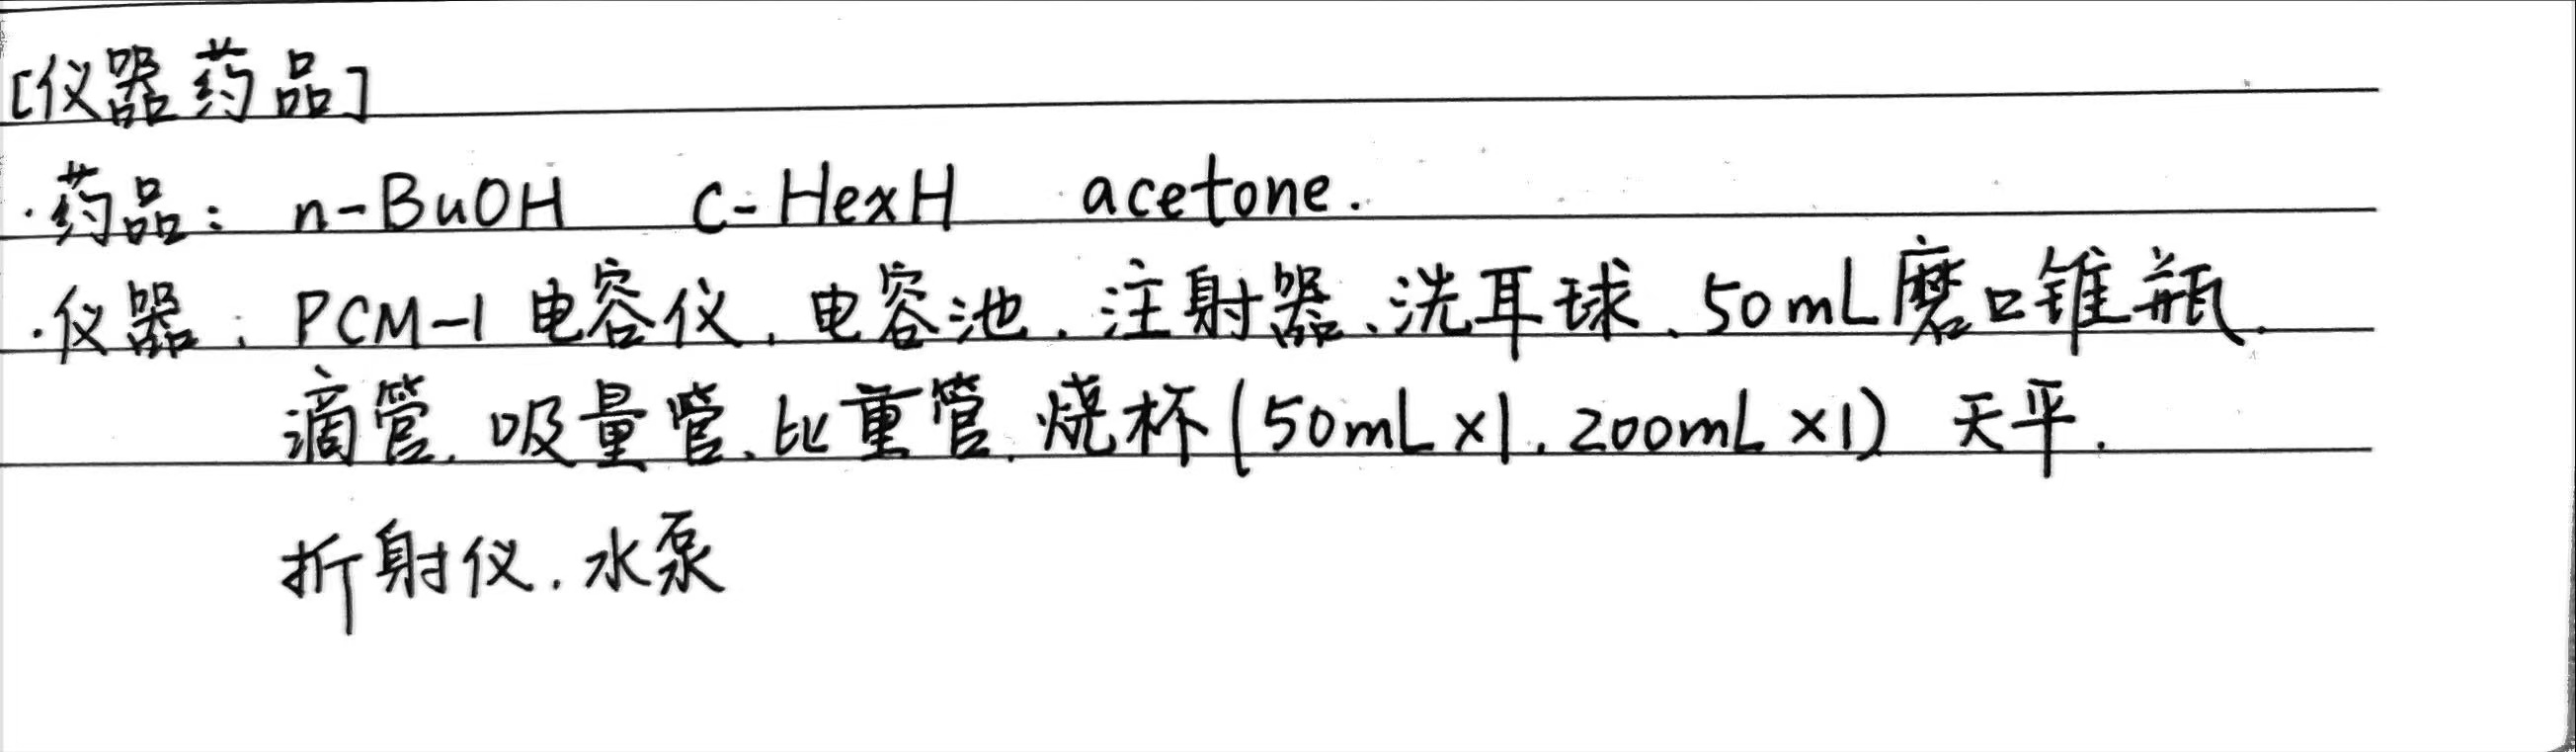 [仪器药品]
·药品: n-BuOH c-HexH acetone.
·仪器: PCM-1电容仪, 电容池, 注射器、洗耳球、50mL磨口锥瓶.
滴管, 吸量管、比重管, 烧杯(50mL×1, 200mL×1) 天平,
折射仪, 水泵